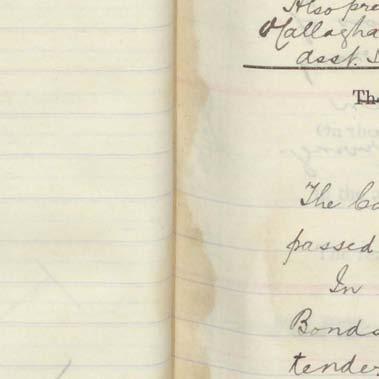 Also pre
O'Callagha
asst.
The
The Co
passed
In
Bonds
tender